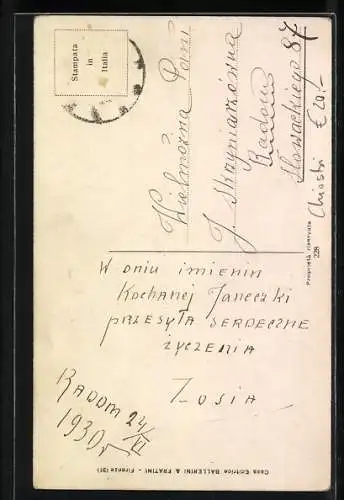 Stampata
in
Italia
Wielmożna Pani
J. Skrzyniarzówna
Radom
Słowackiego 87
Chiostri € 20.-
Proprietà riservata
228
W dniu imienin
Kochanej Janeczki
przesyła serdeczne
życzenia
Zosia
Radom 24/VI
1930r
Casa Editrice BALLERINI & FRATINI - Firenze (31)